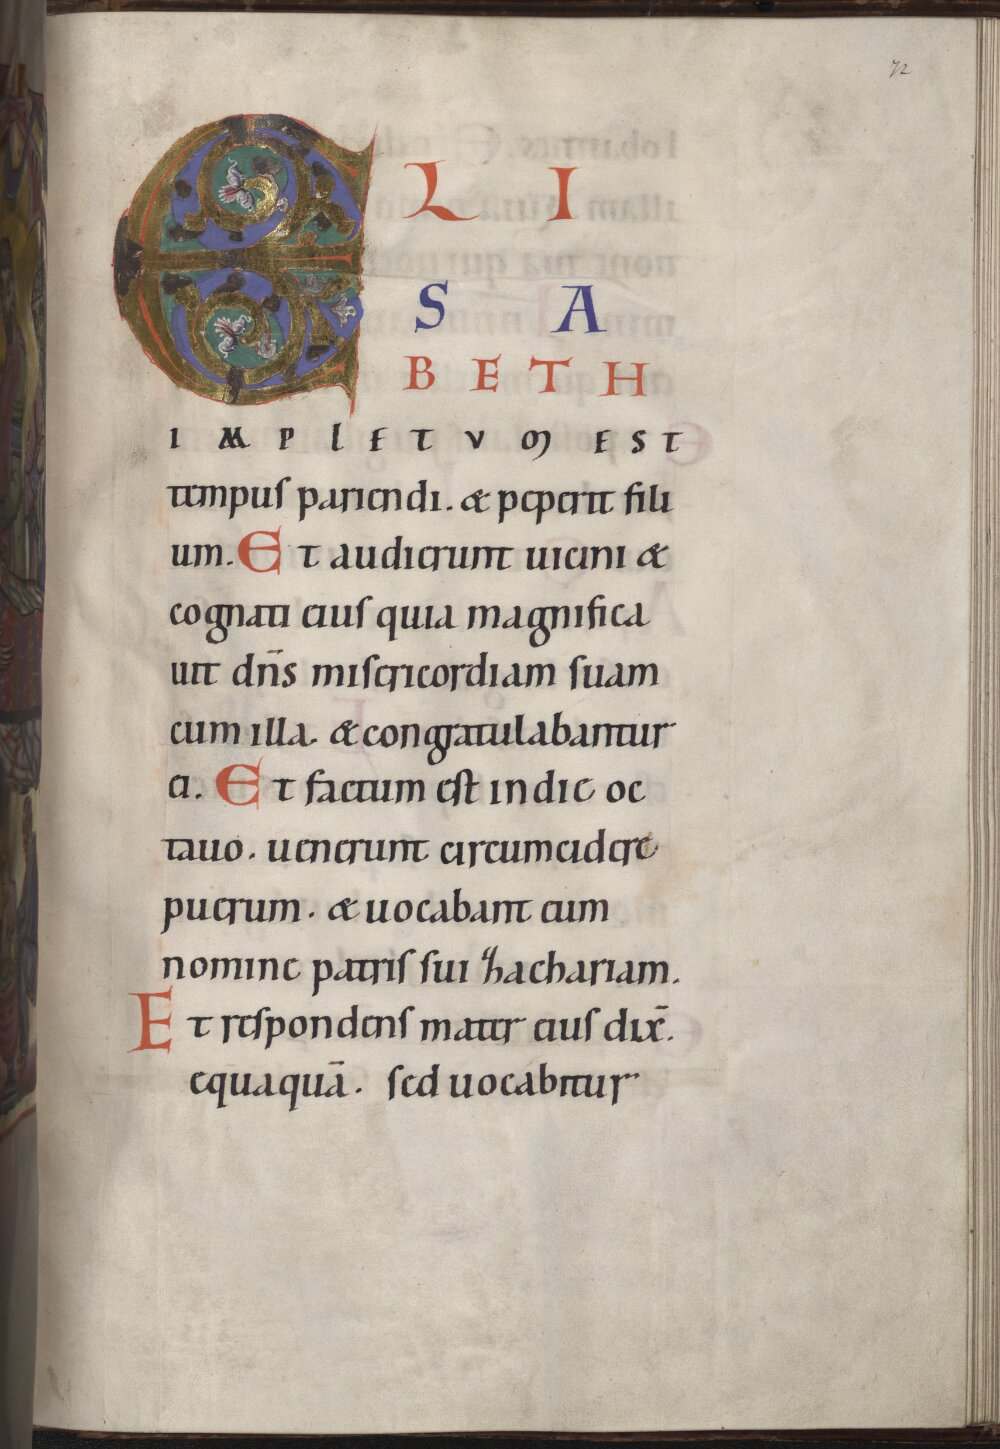 72
ELI
SA
BETH
IMPLETVM EST
tempus pariendi. & peperit fili
um. Et audierunt uicini &
cognati eius quia magnifica
uit dn̄s misericordiam suam
cum illa. & congratulabantur
ei. Et factum est in die oc
tauo. uenerunt circumcidere
puerum. & uocabant eum
nomine patris sui
hachariam.
Et respondens mater eius dix̄.
equaquā. sed uocabitur